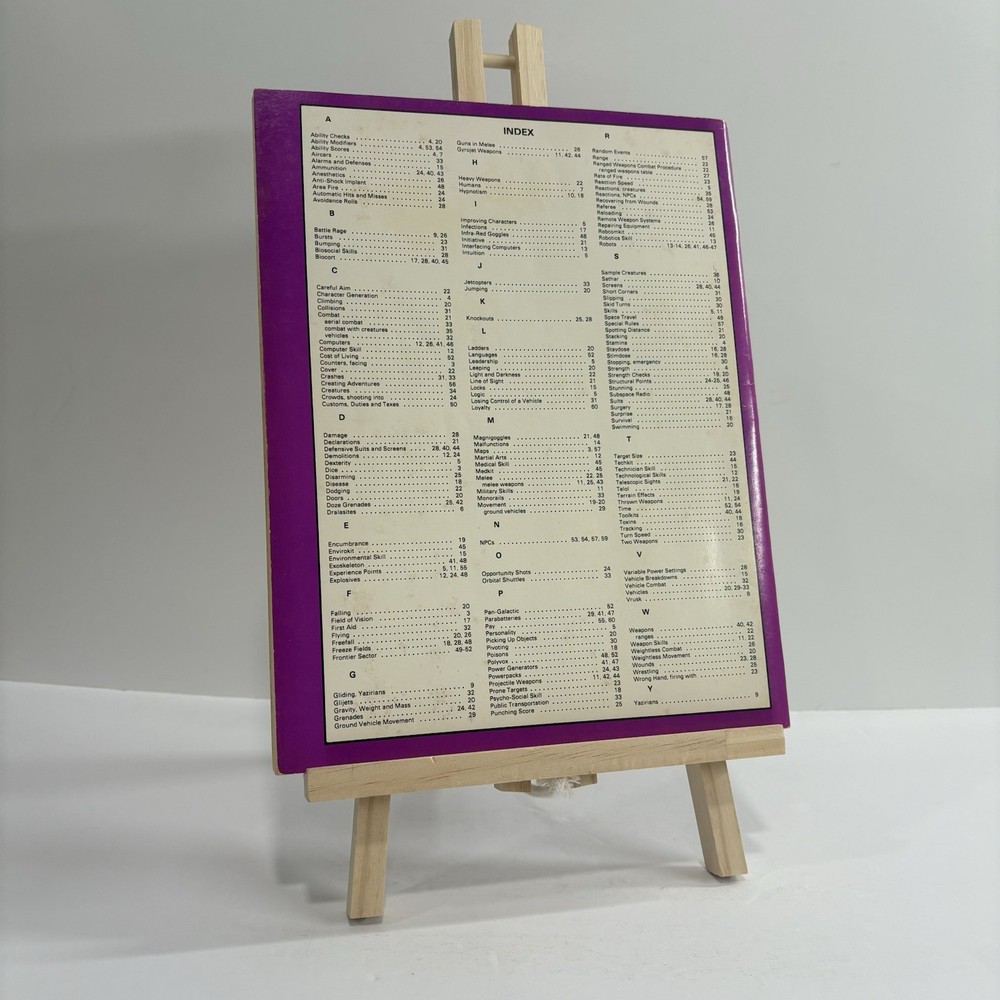 INDEX
A
Ability Checks 4, 20
Ability Modifiers 4, 53, 54
Ability Scores 4, 7
Aircars 33
Alarms and Defenses 15
Ammunition 24, 40, 43
Anesthetics 26
Anti-Shock Implant 48
Area Fire 24
Automatic Hits and Misses 24
Avoidance Rolls 28
B
Battle Rage 9, 26
Bursts 23
Bumping 31
Biosocial Skills 28
Biocort 17, 28, 40, 45
C
Careful Aim 22
Character Generation 4
Climbing 20
Collisions 31
Combat 21
aerial combat 33
combat with creatures 35
vehicles 32
Computers 12, 26, 41, 46
Computer Skill 12
Cost of Living 52
Counters, facing 3
Cover 22
Crashes 31, 33
Creating Adventures 56
Creatures 34
Crowds, shooting into 24
Customs, Duties and Taxes 50
D
Damage 28
Declarations 21
Defensive Suits and Screens 28, 40, 44
Demolitions 12, 24
Dexterity 5
Dice 3
Disarming 25
Disease 18
Dodging 22
Doors 20
Doze Grenades 25, 42
Dralasites 6
E
Encumbrance 19
Envirokit 45
Environmental Skill 15
Exoskeleton 41, 48
Experience Points 5, 11, 55
Explosives 12, 24, 48
F
Falling 20
Field of Vision 3
First Aid 17
Flying 32
Freefall 20, 26
Freeze Fields 18, 28, 48
Frontier Sector 49-52
G
Gliding, Yazirians 9
Glijets 32
Gravity, Weight and Mass 20
Grenades 24, 42
Ground Vehicle Movement 29
Guns in Melee 26
Gyrojet Weapons 11, 42, 44
H
Heavy Weapons 22
Humans 7
Hypnotism 10, 18
I
Improving Characters 5
Infections 17
Infra-Red Goggles 48
Initiative 21
Interfacing Computers 13
Intuition 5
J
Jetcopters 33
Jumping 20
K
Knockouts 25, 28
L
Ladders 20
Languages 52
Leadership 5
Leaping 20
Light and Darkness 22
Line of Sight 21
Locks 15
Logic 5
Losing Control of a Vehicle 31
Loyalty 60
M
Magnigoggles 21, 48
Malfunctions 14
Maps 3, 57
Martial Arts 12
Medical Skill 45
Medkit 45
Melee 22, 25
melee weapons 11, 25, 43
Military Skills 11
Monorails 33
Movement 19-20
ground vehicles 29
N
NPCs 53, 54, 57, 59
O
Opportunity Shots 24
Orbital Shuttles 33
P
Pan-Galactic 52
Parabatteries 29, 41, 47
Pay 55, 60
Personality 5
Picking Up Objects 20
Pivoting 30
Poisons 18
Polyvox 48, 52
Power Generators 41, 47
Powerpacks 24, 43
Projectile Weapons 11, 42, 44
Prone Targets 23
Psycho-Social Skill 18
Public Transportation 33
Punching Score 25
R
Random Events 57
Range 22
Ranged Weapons Combat Procedure 22
ranged weapons table 27
Rate of Fire 23
Reaction Speed 5
Reactions, creatures 35
Reactions, NPCs 54, 59
Recovering from Wounds 28
Referee 53
Reloading 24
Remote Weapon Systems 26
Repairing Equipment 11
Robcomkit 46
Robotics Skill 13
Robots 13-14, 26, 41, 46-47
S
Sample Creatures 36
Sathar 10
Screens 28, 40, 44
Short Corners 31
Slipping 30
Skid Turns 30
Skills 5, 11
Space Travel 49
Special Rules 57
Spotting Distance 21
Stacking 20
Stamina 4
Staydose 16, 28
Stimdose 16, 28
Stopping, emergency 30
Strength 4
Strength Checks 19, 20
Structural Points 24-25, 46
Stunning 25
Subspace Radio 48
Suits 28, 40, 44
Surgery 17, 28
Surprise 21
Survival 16
Swimming 20
T
Target Size 23
Techkit 44
Technician Skill 15
Technological Skills 12
Telescopic Sights 21, 22
Telol 16
Terrain Effects 19
Thrown Weapons 11, 24
Time 52, 54
Toolkits 40, 44
Toxins 18
Tracking 16
Turn Speed 30
Two Weapons 23
V
Variable Power Settings 28
Vehicle Breakdowns 15
Vehicle Combat 32
Vehicles 20, 29-33
Vrusk 8
W
Weapons 40, 42
ranges 22
Weapon Skills 11, 22
Weightless Combat 26
Weightless Movement 20
Wounds 23, 28
Wrestling 25
Wrong Hand, firing with 23
Y
Yazirians 9